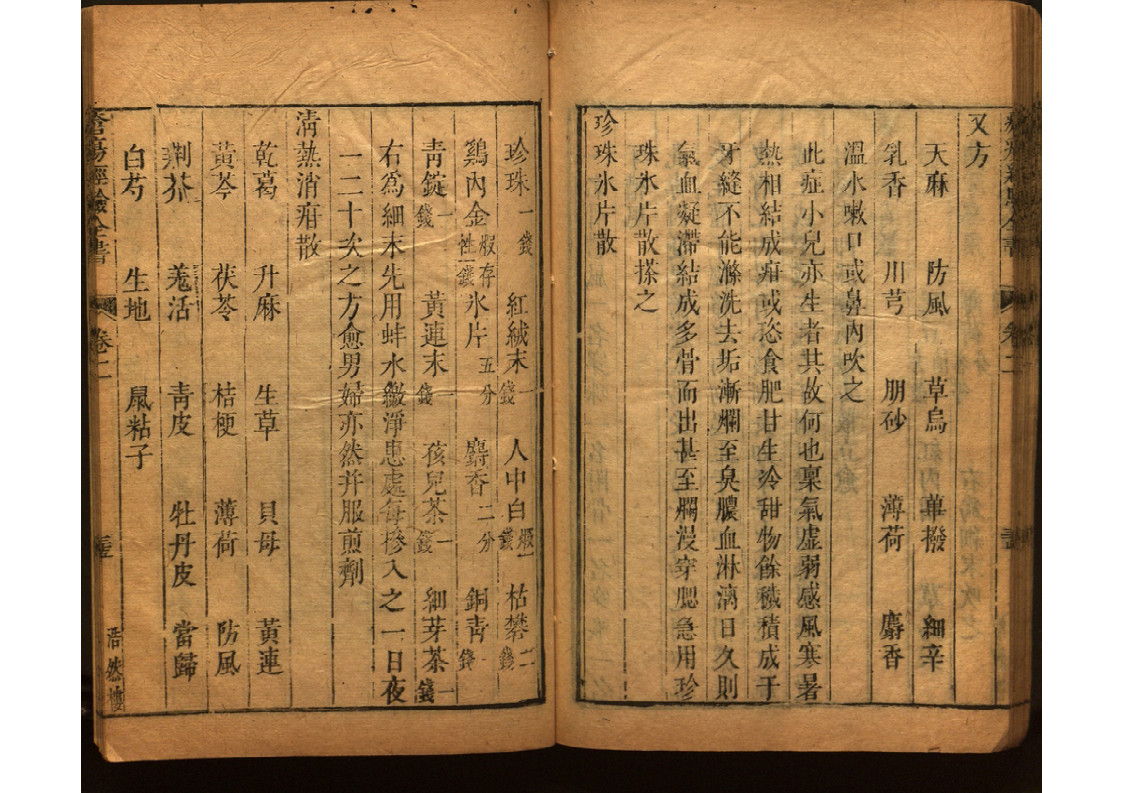 又方
天麻 防風 草烏 蓽撥 細辛
乳香 川芎 朋砂 薄荷 麝香
溫水嗽口或鼻內吹之
此症小兒亦生者其故何也稟氣虛弱感風寒暑
熱相結成疳或恣食肥甘生冷甜物餘穢積成于
牙縫不能滌洗去垢漸爛至臭膿血淋漓日久則
氣血凝滯結成多骨而出甚至爛漫穿腮急用珍
珠氷片散搽之
珍珠氷片散
珍珠一錢 紅絨末一錢 人中白煅一錢 枯礬二錢
鷄內金煅存性一錢 氷片五分 麝香二分 銅青一錢
青錠一錢 黃連末一錢 孩兒茶一錢 細芽茶一錢
右為細末先用蚌水繳淨患處每摻入之一日夜
一二十次之方愈男婦亦然幷服煎劑
清熱消疳散
乾葛 升麻 生草 貝母 黃連
黃芩 茯苓 桔梗 薄荷 防風
荆芥 羗活 青皮 牡丹皮 當歸
白芍 生地 鼠粘子
瘡瘍經驗全書 卷二 浩然樓